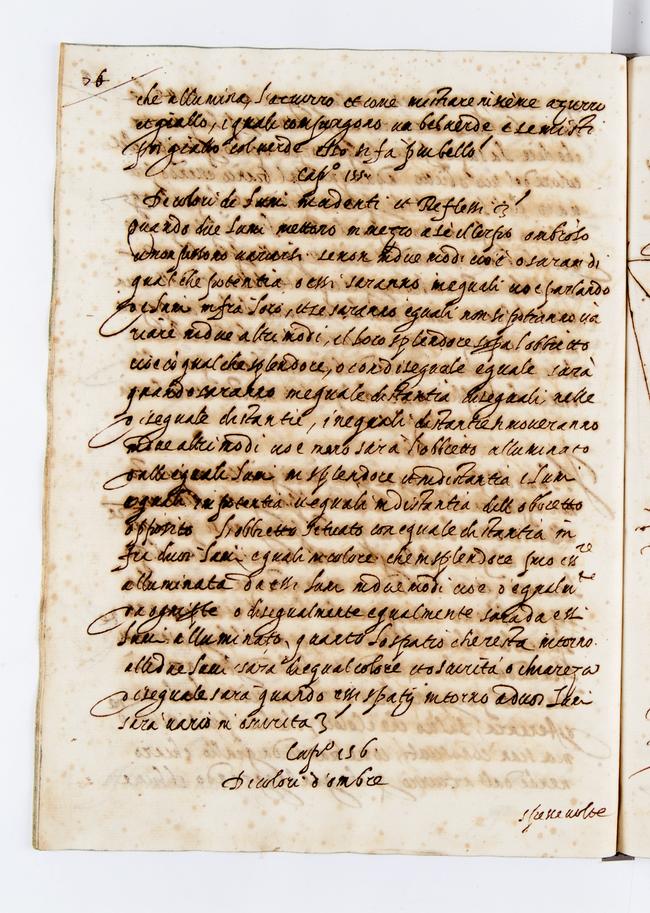 76
che allumina, l'azurro et come mistiare insieme azurro
et giallo, i quali compongono un bel verde e se misti
poi giallo col verde esso si fà piu bello
Cap.º 155.
De colori de lumi incidenti et Reflessi
quando due lumi mettono in mezzo a se il corpo ombroso
non possono variarsi se non in due modi cioè o saran di
qual che potentia o essi saranno inequali cioe parlando
de lumi infra loro, et se saranno equali non si potranno va
riare in due altri modi, il loro splendore sopra l'obbietto
cioe cò qual che splendore, o con disequale equale sarà
quando saranno in equale distantia disequali nelle
disequale distantie, inequali distantie moveranno
in due altri modi cioe meno sarà l'obbietto alluminato
dalli equali lumi in splendore et in distantia i lumi
equali in potentia et equali in distantia dall obbietto
opposito l'obbietto situato con equale distantia in
fra duoi lumi equali in colore che in splendore puo ess.re
alluminata da essi lumi in due modi cioe o equalm.te
da ogni parte o disequalmente equalmente sarà da essi
lumi alluminato, quanto lo spatio che resta intorno
alli due lumi sarà d'equal colore et oscurità o chiareza
disequale sarà quando essi spatij intorno a duoi lumi
sarà varij in oscurità
Cap.º 156.
De colori d'ombre
spesse volte